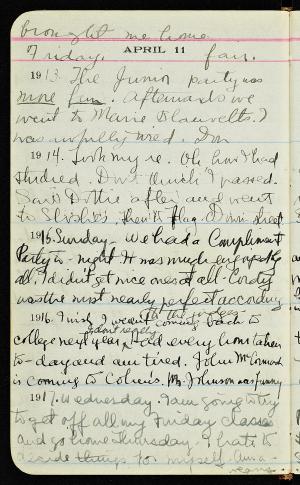 brought me home
Friday. fair.
APRIL 11
1913. The Junior party was
more fun. Afterwards we
went to Marie Blauvelts. I
was awfully tired. Don
1914. Took my re. Oh how I had
studied. Don't think I passed.
Saw Dottie after and went
to Then to
1915. Sunday - We had a Compliment
Party to-night. It was much enjoyed by
all. I didn't get nice ones at all. Cordy
was the most nearly perfect according
to the judges
1916. I wish I weren't coming back to
college next year, -ed every exam taken
to-day and am tired. John
is coming to Johnson was funny
1917. Wednesday. I am going to try
to get off all my Friday classes
and go home Thursday. I hate to
decide things for myself.